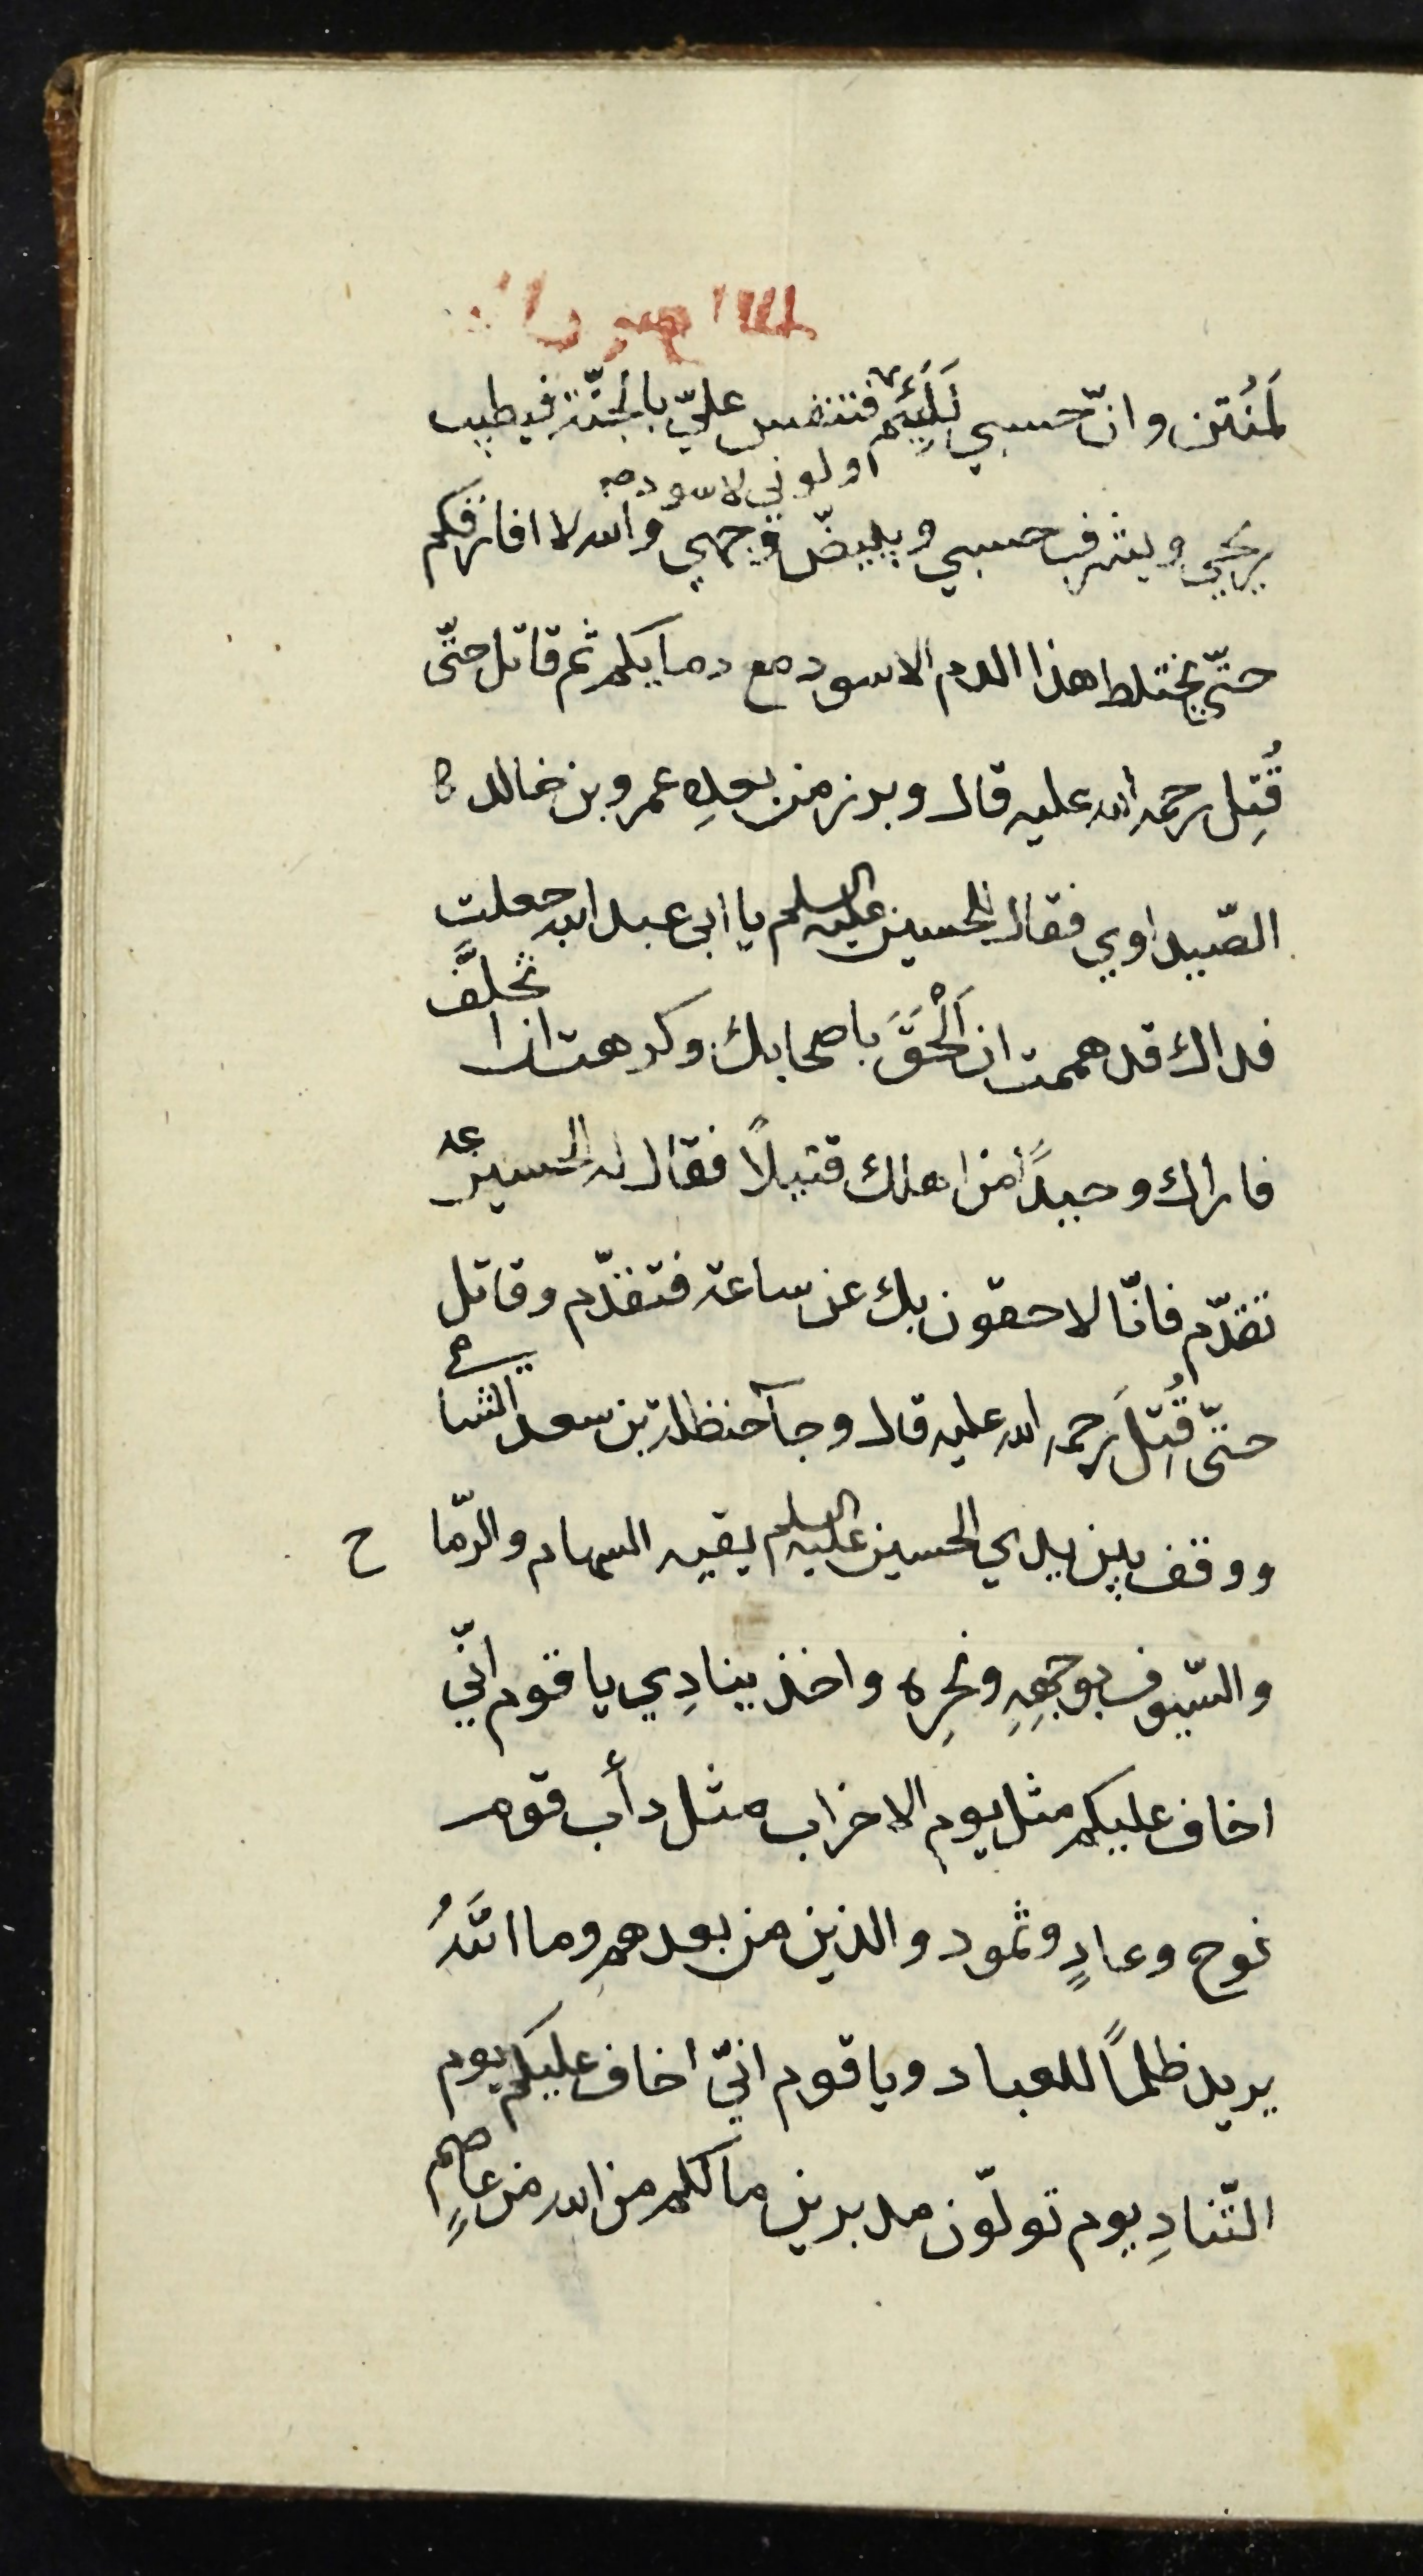 لَمُنتن وانّ حسبي لَلَئِيم فتنفس عليّ بالجنّة فيطيب
ولوني لاسود صح
ريحي ويشرف حسبي ويبيضّ وجهي والله لا افارقكم
حتّى يختلط هذا الدم الاسود مع دمايكم ثم قاتل حتّى
قُتِل رحمة الله عليه قال وبرز من بعدِه عمرو بن خالد
الصّيداوي فقال للحسين عليه السلم يا ابى عبد الله جعلت
فداك قد هممت ان اَلْحَقَ باصحابك وكرهت ان اتخلَّف
فاراك وحيدًا من اهلك قتيلاً فقال له الحسين ع
تقدّم فانّا لاحقون بك عن ساعة فتقدّم وقاتل
حتّى قُتِلَ رحمة الله عليه قال وجآ حنظلة بن سعد الشبامي
ووقف بين يدي الحسين عليه السلم يقيه السهام والرّماح
والسّيوف بوجهِهِ ونحرِه واخذ ينادِي يا قوم انّي
اخاف عليكم مثل يوم الاحزاب مثل دأب قوم
نوح وعادٍ وثمود والذين من بعدهم وما اللهُ
يريد ظلمًا للعباد ويا قوم انّي اخاف عليكم يوم
التّنادِ يوم تولّون مدبرين مالكم من الله من عاصمٍ